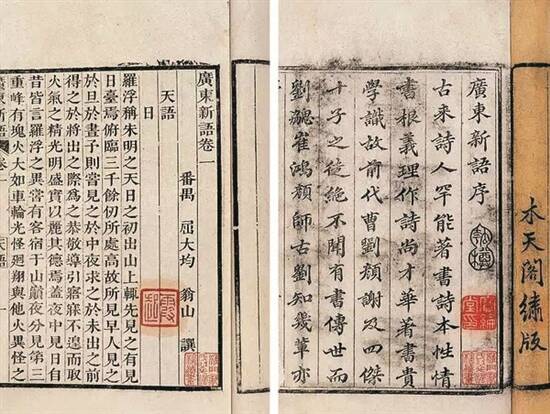 水天閣繡版
廣東新語序
古来詩人罕能著書詩本性情
書根義理作詩尚才華著書貴
學識故前代曹劉顏謝及四傑
十子之徒絕不聞有書傳世而
劉勰崔鴻顏師古劉知幾輩亦
廣東新語卷一
番禺 屈大均 翁山 譔
天語
日
羅浮稱朱明之天日之初出山上輒先見之有見
日臺焉俯臨三千餘仞所處高故所見早人見之
於旦於晝予則嘗見之於中夜求之於未出之前
得之於將出之際為之恭敬導引寤寐不遑而取
火氣之精光明盛實以麗其德焉蓋夜中見日自
昔皆言羅浮之異嘗有客宿于山巔夜分見第三
重峰有塊火大如車輪光怪迴翔與他火異怪之
廣東新語 卷一 天語